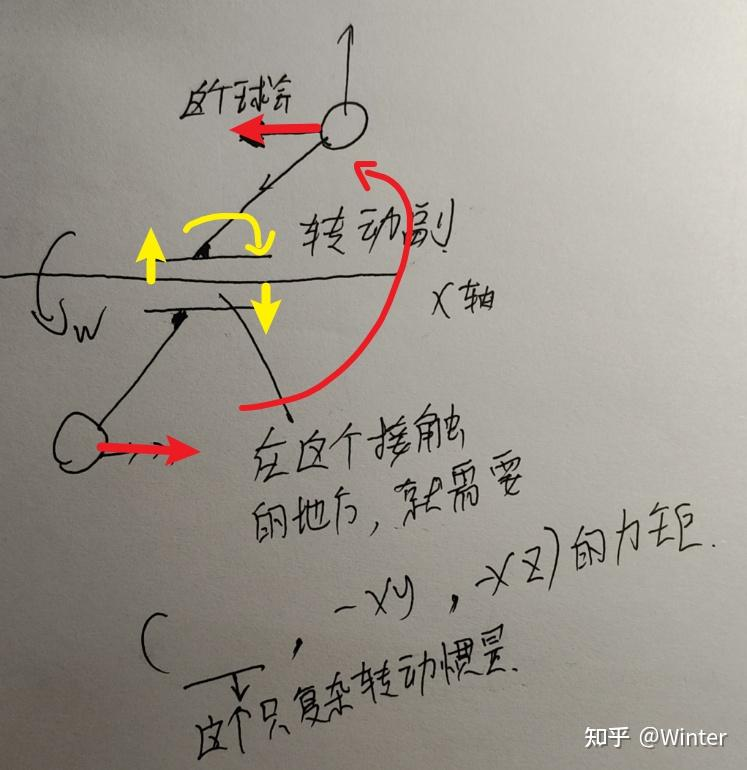 这个球会
转动副
W
X轴
在这个接触
的地方，就需要
( ___ , -xy , -xz)的力矩.
这个只复杂转动惯量.
知乎 @Winter